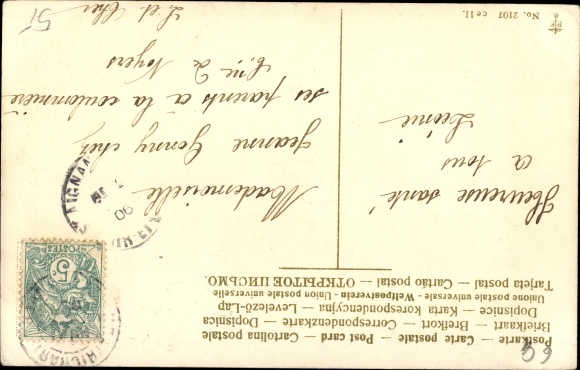 Postkarte — Carte postale — Post card — Cartolina postale
Briefkaart — Brefkort — Correspondenzkarte — Dopisnica
Dopisnice — Karta korespondencyjna — Levelező-Lap
Unione postale universale - Weltpostverein - Union postale universelle
Tarjeta postal — Cartão postal — ОТКРЫТОЕ ПИСЬМО
Heureuse santé
a tous
Léonie
Mademoiselle
Jeanne Gonny chez
ses parents a la coulommière
C.ne de Noyers
L et Cher
51
No. 2107 ce 11.
POSTES
5
ST AIGNAN
06